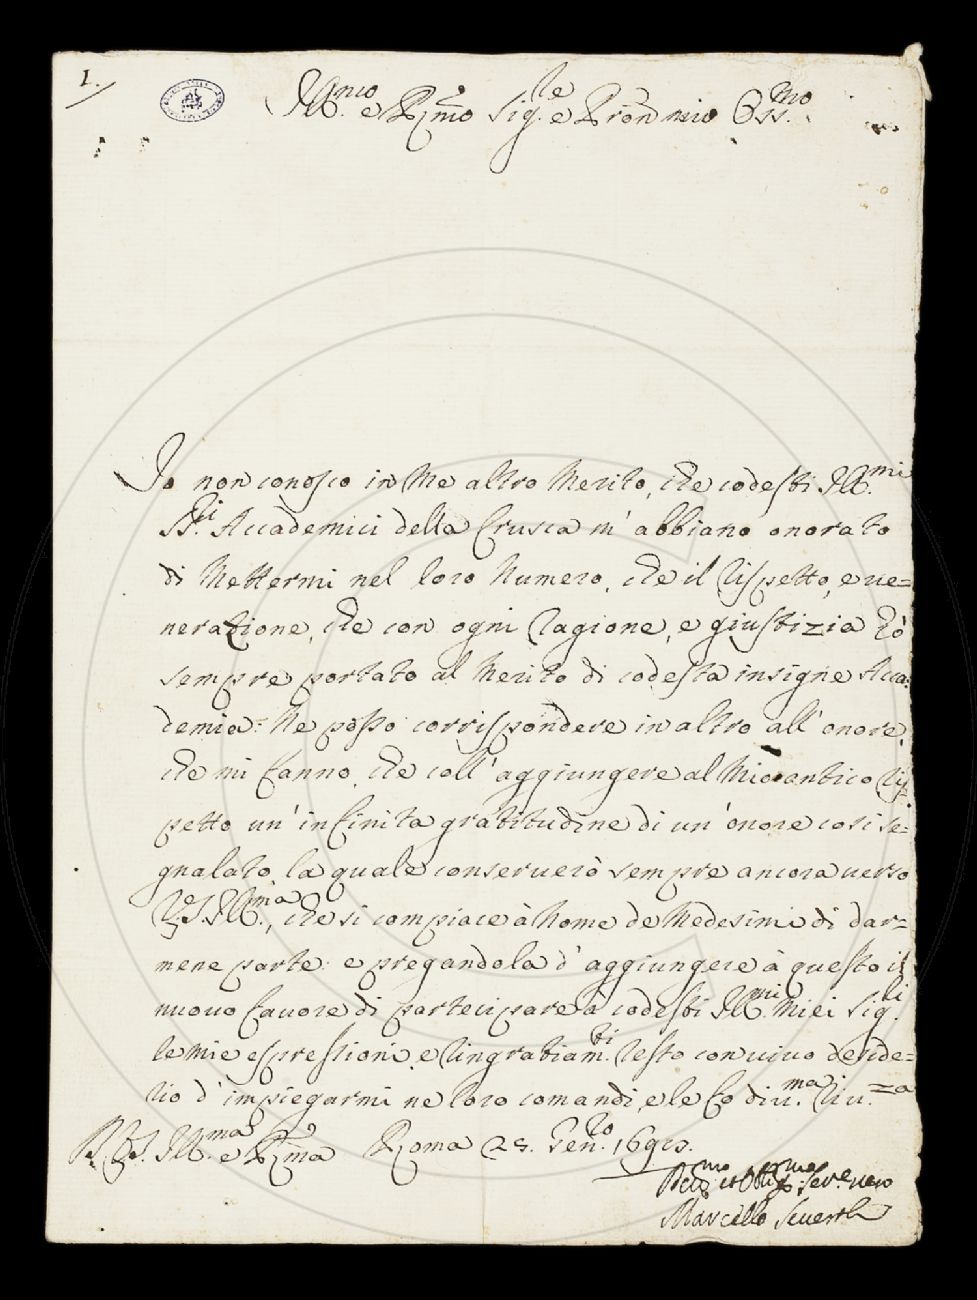 1.
Ill.mo e R.mo Sig.le e Pron mio Oss.mo
Io non conosco in me altro merito, che codesti Ill.mi
SS.ri Accademici della Crusca m' abbiano onorato
di mettermi nel loro numero, che il rispetto, e ue=
nerazione, che con ogni ragione, e giustizia hò
sempre portato al merito di codesta insigne Acca=
demia: Ne posso corrispondere in altro all' onore,
che mi fanno, che coll' aggiungere al mio antico ris=
petto un' infinita gratitudine di un' onore così se=
gnalato, la quale conseruerò sempre ancora uerso
V.S. Ill.ma, che si compiace à nome de medesimi di dar=
mene parte: e pregandola d' aggiungere à questo il
nuouo fauore di partecipare à codesti Ill.mi miei Sig.ri
le mie espressioni, e ringratiam.ti resto con uiuo deside=
rio d' impiegarmi ne loro comandi, e le fo diu.ma riu.za
D. V.S. Ill.ma e R.ma Roma 25. Gen.ro
Deu.mo et Obblig.mo Ser.e uero
Marcello Seueroli